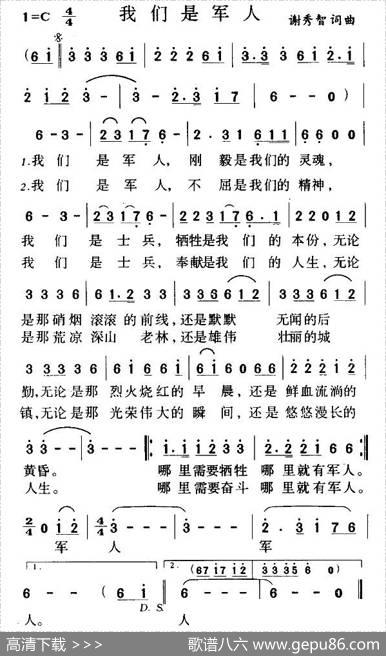 我们是军人
1=C 4/4
谢秀智词曲
(6 i 3 3 3 6 i 2 2 2 6 i 3 3 3 6 i
2 i 2 3 - 3 - 2. 3 1 7 6 - - 0)
6 - 3 - 2 3 1 7 6 - 3. 2 3 - 2. 3 1 6 1 1 6 6 0 0
1.我 们 是 军 人, 刚 毅是我们的 灵魂,
2.我 们 是 军 人, 不 屈是我们的 精神,
6 - 3 - 2 3 1 7 6 - 2 2 2 3 1 7 6. 1 2 2 0 1 2
我 们 是 士 兵, 牺牲是我 们 的 本份,无论
我 们 是 士 兵, 奉献是我 们 的 人生,无论
3 3 3 6 6 1. 2 3 3 3 3 6 6 1 2 3 3 3 6
是那 硝烟 滚滚 的 前线,还是 默默 无闻的后
是那 荒凉 深山 老林,还是 雄伟 壮丽的城
3 3 3 6 1 6 6 6 1 2 6 6 1 2 2 2 1 2
勤,无论是那 烈火烧红的 早 晨,还是 鲜血流淌的
镇,无论是那 光荣伟大的 瞬 间,还是 悠悠漫长的
3 3 - - 3 - - - 1. 1 1 1 2 3 3 2. 2 2 2 1 6 6
黄昏。 哪 里需要牺牲 哪 里就有军人。
人生。 哪 里需要奋斗 哪 里就有军人。
2/4 0 1 2 4/4 3 - - - 3 - - - 2. 3 1 7 6
军 人 军
1. 2. (6 7 1 7 1 2 3 3 3 5 6 0)
6 - - - 6 - - (6 i 6 - - - 6 - - - 6 - - 0
D. S.
人。 人
高清下载 >>> 歌谱八六 www.gepu86.com